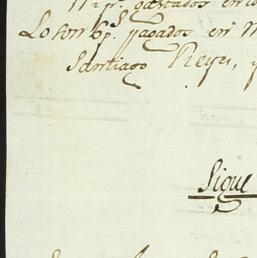 gastados en
Lo son 6 p.s pagados en M
Santiago Reyes, y
Sigue